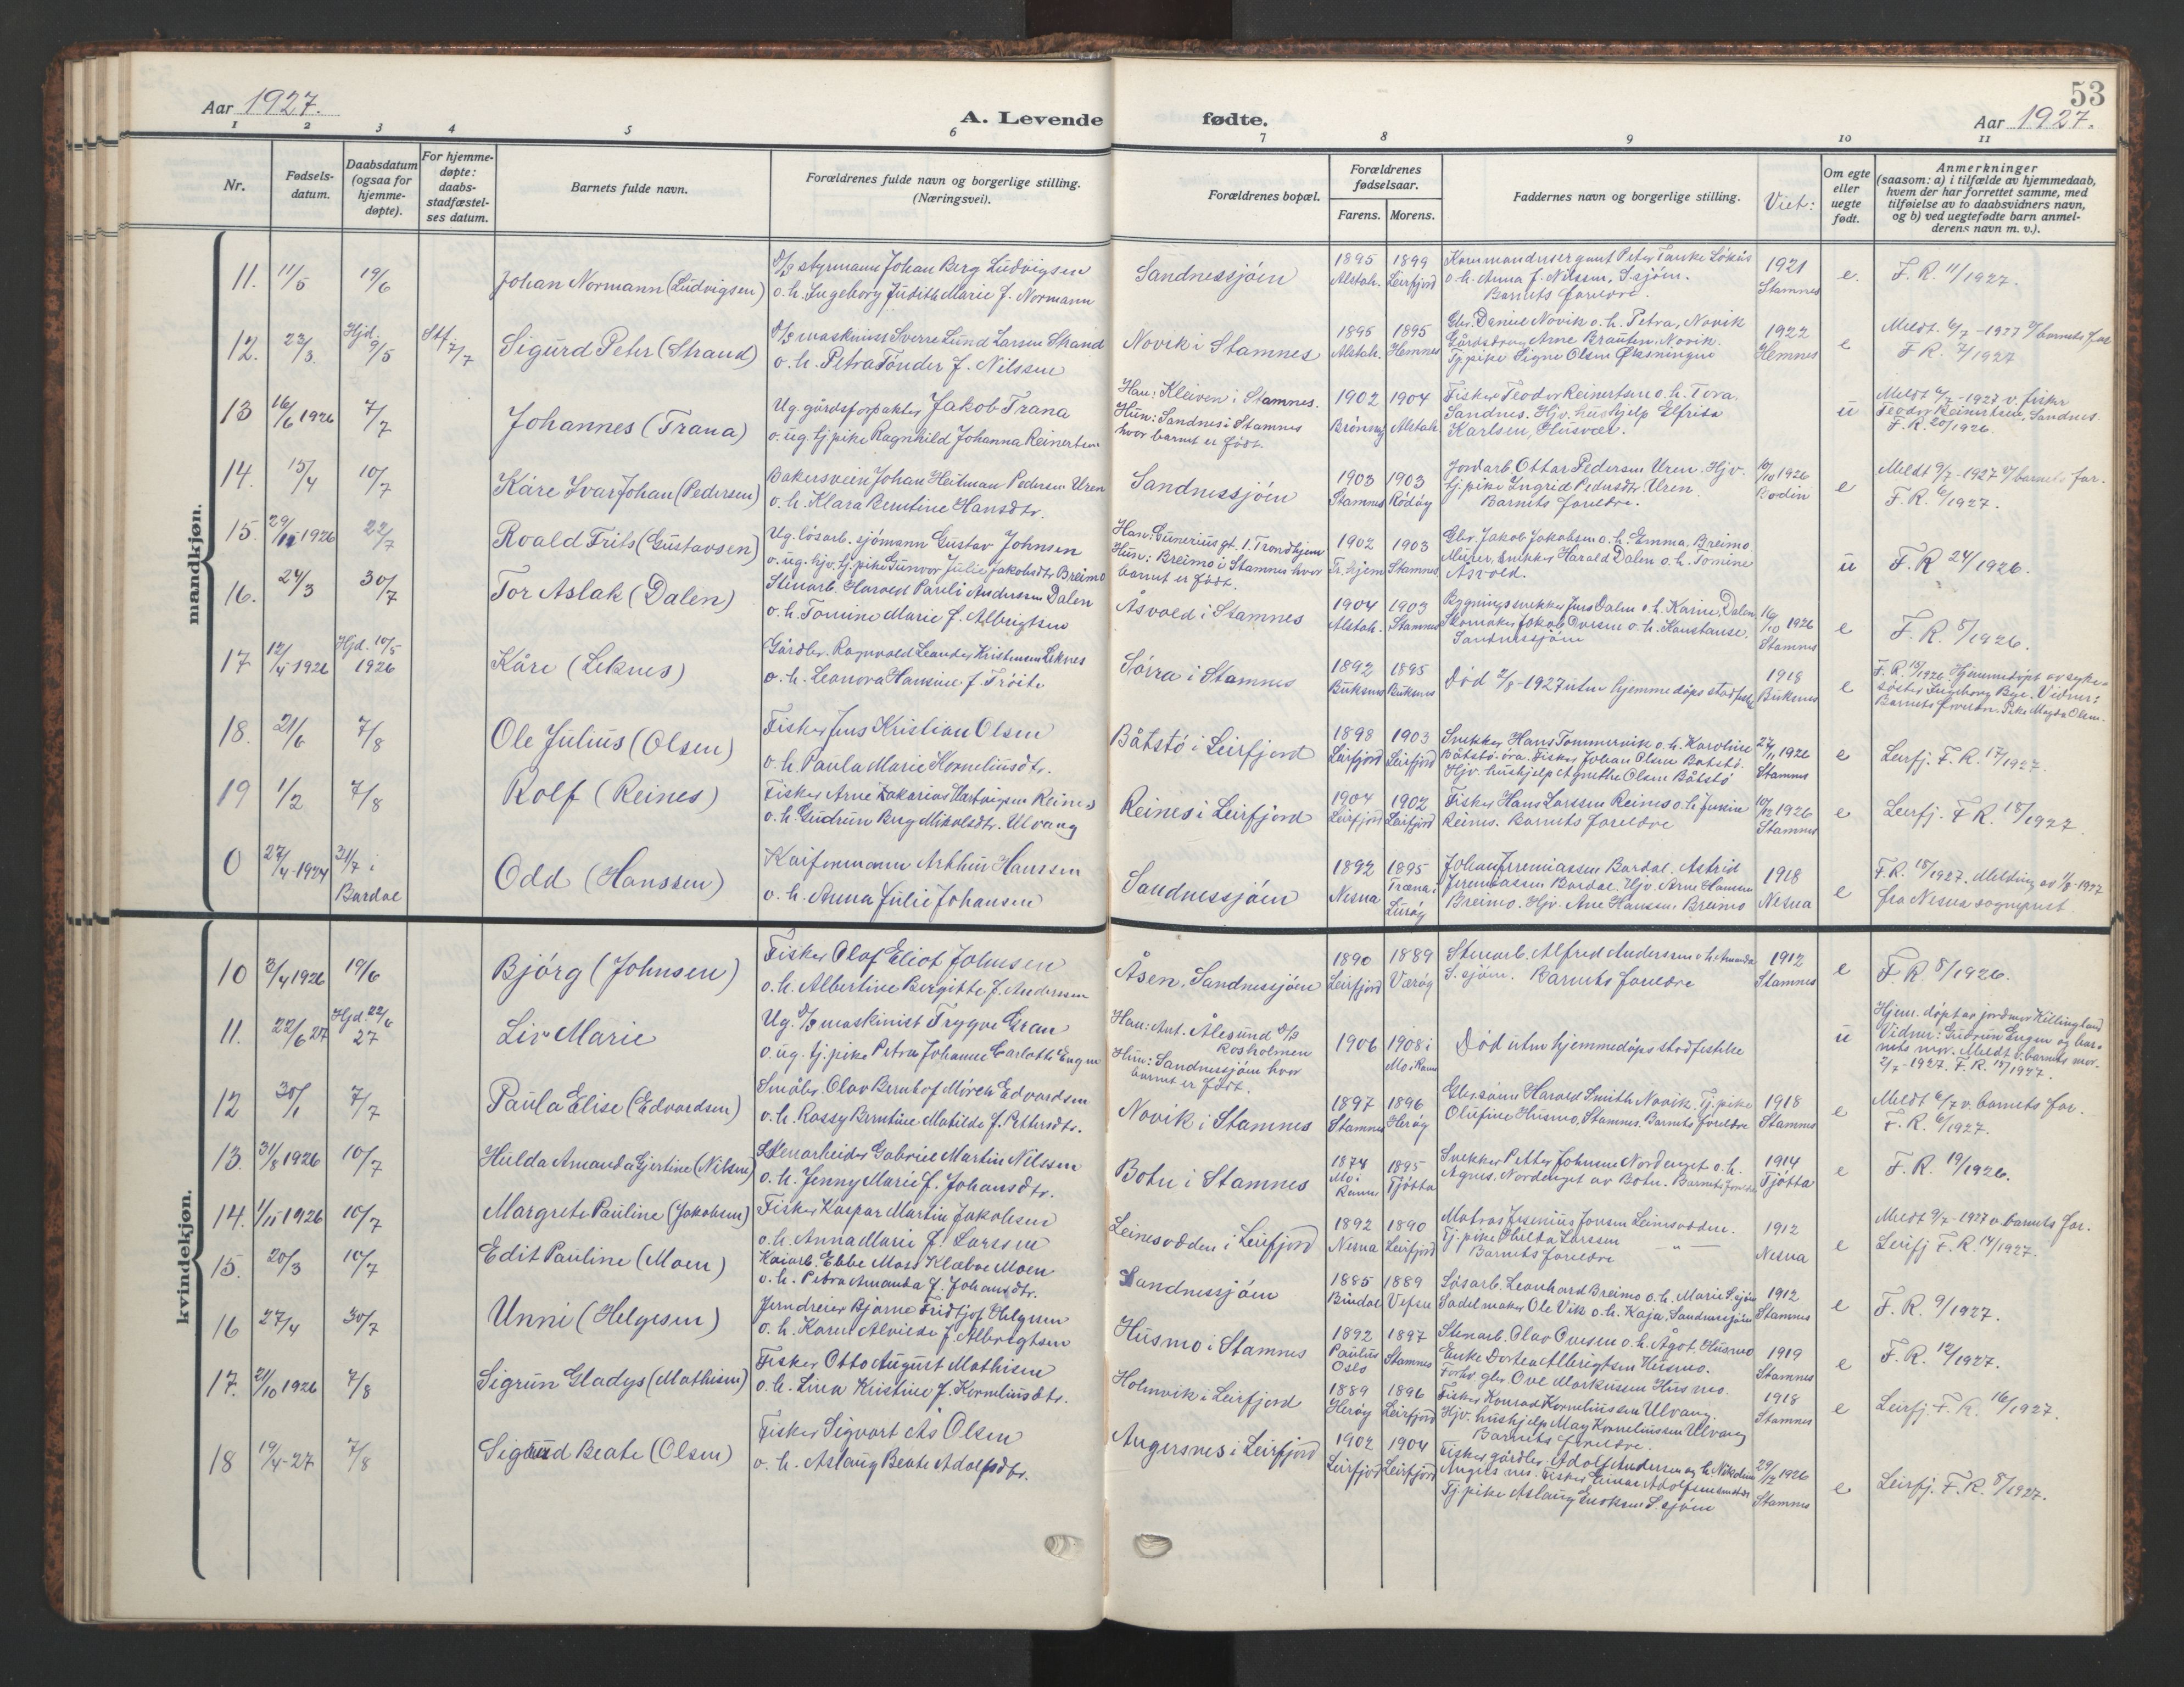 Aar 1927.
A. Levende
1 2 3 4 5 6
Nr.
Fødsels-
datum.
Daabsdatum
(ogsaa for
hjemme-
døpte).
For hjemme-
døpte:
daabs-
stadfæstel-
ses datum.
Barnets fulde navn.
Forældrenes fulde navn og borgerlige stilling.
(Næringsvei).
mandkjøn.
11. 11/5 19/6 Johan Normann (Ludvigsen)
D/S styrmann Johan Berg Ludvigsen
o. h. Ingeborg Judith Marie f. Normann
12. 22/3 Hjd. 9/5 Stf. 7/7 Sigurd Peter (Strand)
D/S maskinist Sverre Lund Larsen Strand
o. h. Petra Tonder f. Nilssen
13 16/6 1926 7/7 Johannes (Trana)
Ug. gårdsforpakter Jakob Trana
o. ug. tj. pike Ragnhild Johanna Reinertsen
14. 15/4 10/7 Kåre Ivar Johan (Pedersen)
Bakersvein Johan Heitman Pedersen Uren
o. h. Klara Bentine Hansdtr.
15. 29/11 1926 22/7 Roald Frits (Gustavsen)
Ug. løsarb. sjømann Gustav Johnsen
o. ug. hjv. tj. pike Gunvor Julie Jakobsdtr. Breimo
16. 24/3 30/7 Tor Aslak (Dalen)
Stenarb. Harald Pareli Andersen Dalen
o. h. Tomine Marie f. Albrigtsen
17 12/4 1926 Hjd. 10/5 1926 Kåre (Leknes)
Gårdbr. Ragnvald Leander Kristensen Leknes
o. h. Leonora Hansine f. Tröite
18. 21/6 7/8 Ole Julius (Olsen)
Fisker Jens Kristian Olsen
o. h. Paula Marie Korneliusdtr.
19 1/2 7/8 Rolf (Reines)
Fisker Arne Zakarias Hartvigsen Reines
o. h. Gudrun Berg Mikalsdtr. Ulvang
0 27/4-1924 31/7 i Bardal Odd (Hanssen)
Kaiformann Arthur Hanssen
o. h. Anna Julie Johansen
kvindekjøn.
10 3/4 1926 19/6 Bjørg (Johnsen)
Fisker Olaf Eliot Johnsen
o. h. Albertine Bergitte f. Andersen
11. 22/6 27 Hjd. 22/6 27 Liv Marie
Ug. D/S maskinist Trygve Gran
o. ug. tj. pike Petra Johanne Carlotte Engen
12 30/1 7/7 Paula Elise (Edvardsen)
Småbr. Olav Bernhof Mörch Edvardsen
o. h. Rossy Berntine Matilde f. Pettersdtr.
13. 31/8 1926 10/7 Hulda Amanda Gjertine (Nilsen)
Stenarbeider Gabriel Martin Nilssen
o. h. Jenny Marie f. Johansdtr.
14. 1/11 1926 10/7 Margrete Pauline (Jakobsen)
Fisker Kaspar Martin Jakobsen
o. h. Anna Marie f. Larssen
15. 20/3 10/7 Edit Pauline (Moen)
Kaiarb. Ebbe Moss Klæboe Moen
o. h. Petra Amanda f. Johansdtr.
16 27/4 30/7 Unni (Helgesen)
Jerndreier Bjarne Fridtjof Helgesen
o. h. Karen Alvilde f. Albrigtsen
17. 21/10 1926 7/8 Sigrun Gladys (Mathisen)
Fisker Otto August Mathisen
o. h. Lina Kristine f. Korneliusdtr.
18 19/4-27 7/8 Sigrud Beate (Olsen)
Fisker Sigvart As Olsen
o. h. Aslaug Beate Adolfsdtr.
53
fødte.
Aar 1927.
7 8 9 10 11
Forældrenes bopæl.
Forældrenes
fødselsaar.
Farens. Morens.
Faddernes navn og borgerlige stilling.
Viet:
Om egte
eller
uegte
født.
Anmerkninger
(saasom: a) i tilfælde av hjemmedaab,
hvem der har forrettet samme, med
tilføielse av to daabsvidners navn,
og b) ved uegtefødte barn anmel-
derens navn m. v.).
Sandnessjøen 1895 Alstah. 1899 Leirfjord
Kommandersergant Peter Tanke Lökås
o. h. Anna f. Nilssen, S.sjøen.
Barnets foreldre.
1921 Stamnes e. F. R. 11/1927.
Novik i Stamnes 1895 Alstah. 1895 Hemnes
Gbr. Daniel Novik o. h. Petra, Novik
Arne Brauten, Novik.
Tj. pike Signe Olsen
1922 Hemnes e
Meldt. 6/7-1927 v/ barnets far
F R. 7/1927
Han: Kleiven i Stamnes.
Hun: Sandnes i Stamnes
hvor barnet er født.
1902 Brönnöy 1904 Alstah.
Fisker Teodor Reinertsen o. h. Tora.
Sandnes. Hjv. hushjelp Elfrida
Karlsen, Husvær.
u
Meldt 6/7-1927 v. fisker
Teodor Reinertsen, Sandnes.
F. R. 20/1926.
Sandnessjøen 1903 Stamnes 1903 Rödöy
Jordarb. Ottar Pedersen Uren. Hjv.
tj. pike Ingrid Pedersdtr. Uren
Barnets foreldre.
10/10 1926 Bodin e
Meldt 9/7-1927 v/ barnets far.
F. R. 6/1927.
Han: Gunerius gt. 1. Trondhjem
Hun: Breimo i Stamnes hvor
barnet er født.
1902 Tr.hjem 1903 Stamnes
Gbr. Jakob Jakobsen o. h. Emma. Breimo
Murer, Snekker Harald Dalen o. h. Tomine
Åsvold.
u F. R 24/1926.
Åsvold i Stamnes 1904 Alstah. 1903 Stamnes
Bygningssnekker Jens Dalen o. h. Karine, Dalen
Skomaker Jakob Ovesen o. h. Konstanse.
Sandnessjøen
16/10 1926 Stamnes e F. R. 8/1926.
Sörra i Stamnes 1892 Buksnes 1895 Buksnes
Död 2/8-1927 uten hjemmedöps stadfestelse
1918 Buksnes e
F. R. 15/1926 Hjemmedöpt av syke-
söster Ingeborg Bye. Vidner:
Barnets foreldre. Pike Magda Olsen.
Båtstø i Leirfjord 1898 Leirfjord 1903 Leirfjord
Snekker Hans Tommervik o. h. Karoline
Båtstø-öra. Fisker Johan Olsen Båtstø.
Hjv. hushjelp Agnethe Olsen Båtstø
27/11 1926 Stamnes e Leirfj. F. R. 17/1927.
Reines i Leirfjord 1904 Leirfjord 1902 Leirfjord
Fisker Hans Larssen Reines o. h. Jensine
Reines. Barnets foreldre
10/12 1926 Stamnes e Leirfj. F R. 18/1927.
Sandnessjøen 1892 Nesna 1895 Træna i Luröy
Johan Jeremiassen Bardal. Astrid
Jeremiassen Bardal. Hjv. Arne Hansen
Breimo. Hjv. Ane Hanssen Breimo
1918 Nesna e
F. R. 18/1927. Melding av 1/8-1927
fra Nesna sogneprest.
Åsen, Sandnessjøen 1890 Leirfjord 1889 Værøy
Stenarb. Alfred Andersen o. h. Amanda
S.sjøen. Barnets foreldre
1912 Stamnes e F. R. 8/1926.
Han: Ant. Ålesund D/S
Rosholmen
Hun: Sandnessjøen hvor
barnet er født.
1906 1908 i Mo i Rana
Död uten hjemmedöps stadfestelse
u
Hjem. döpt av jordmor Killingland
Vidner: Gudrun Engen og bar-
nets mor. Meldt v. barnets mor
2/7-1927. F. R. 15/1927.
Novik i Stamnes 1897 Stamnes 1896 Heröy
Gbr.sönn Harald Smith Novik. Tj. pike
Olufine Husmo, Stamnes. Barnets foreldre
1918 Stamnes e
Meldt 6/7 v. barnets far.
F. R. 6/1927.
Botn i Stamnes 1874 Mo i Rana 1895 Tjötta
Snekker Petter Johnsen Nordenget o. h.
Agnes. Nordenget av Botn. Barnets foreldre
1914 Tjötta e F. R. 19/1926.
Leinesodden i Leirfjord 1892 Nesna 1890 Leirfjord
Matros Jesenius Jonsen Leinesodden.
Tj. pike Hilda Larssen — " —
Barnets foreldre
1912 Nesna e
Meldt 9/7-1927 v. barnets far.
Leirfj F. R. 14/1927.
Sandnessjøen 1885 Bindal 1889 Vefsn
Løsarb. Leonhard Breimo o. h. Marie S.sjøen
Sadelmaker Ole Vik o. h. Kaja, Sandnessjøen
1912 Stamnes e F. R. 9/1927.
Husmo i Stamnes 1892 Paulus Oslo 1897 Stamnes
Stenarb. Olav Ovesen o. h. Ågot, Husmo
Enke Dortea Albrigtsen Husmo.
Forhv gbr. Ove Markussen Husmo.
1919 Stamnes e F. R. 12/1927.
Holmvik i Leirfjord 1889 Heröy 1896 Leirfjord
Fisker Konrad Korneliussen Ulvang.
Hjv. hushjelp May Korneliussen Ulvang
Barnets foreldre.
1918 Stamnes e Leirfj. F. R. 16/1927.
Angersnes i Leirfjord 1902 Leirfjord 1904 Leirfjord
Fisker gårdbr. Adolf Andersen og h. Nikoline
Angersnes. Fisker Einar Adolfsen
Tj. pike Aslaug Enoksen S.sjøen
29/12 1926 Stamnes e Leirfj. F. R. 8/1927.